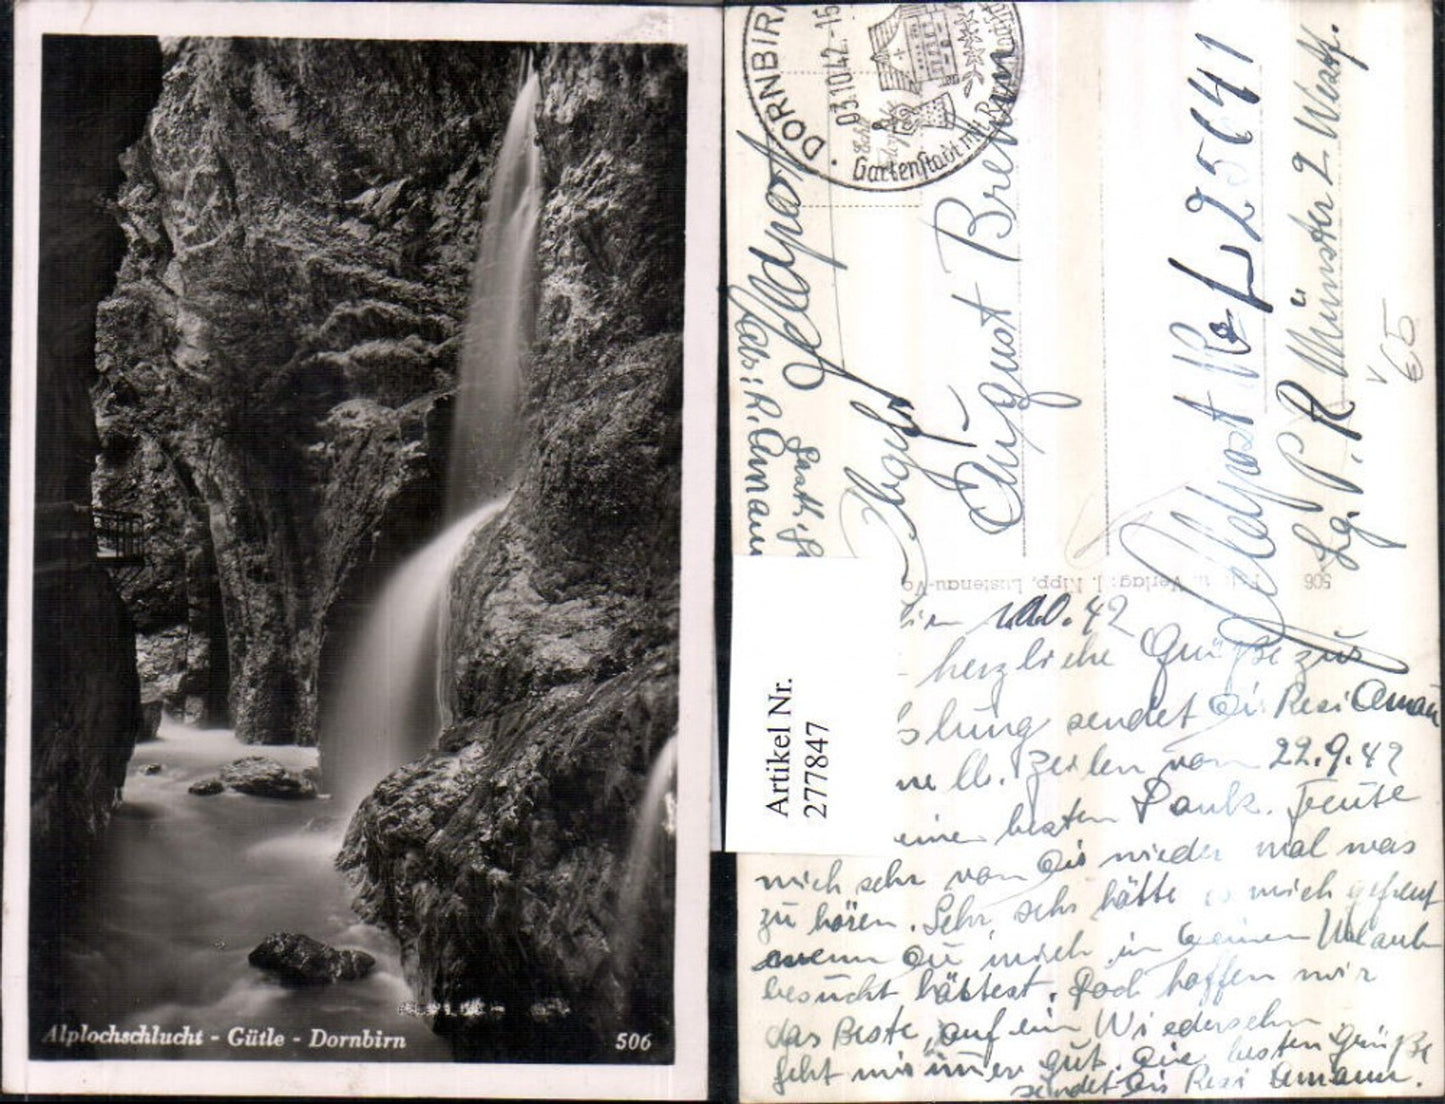 Alplochschlucht - Gütle - Dornbirn 506
DORNBIRN
03.10.42.-15
Gartenstadt mit
Feldpost
Abs: R. Amann
August
Feldpost
L 25641
Lg. P. A.
Münster 2 Westf.
65
506
Verlag: J. Kipp, Lustenau-Vo
Artikel Nr.
277847
.10.42
herzliche Grüße zur
sendet Dir Resi Aman
lb. Zeilen vom 22.9.42
einen besten Dank. Freute
mich sehr von Dir wieder mal was
zu hören. Sehr, sehr hätte es mich gefreut
wenn Du mich in Deinen Urlaub
besucht hättest. Doch hoffen wir
das Beste, auf ein Wiedersehn
geht mir immer gut. Die besten Grüße
sendet Dir Resi Amann.